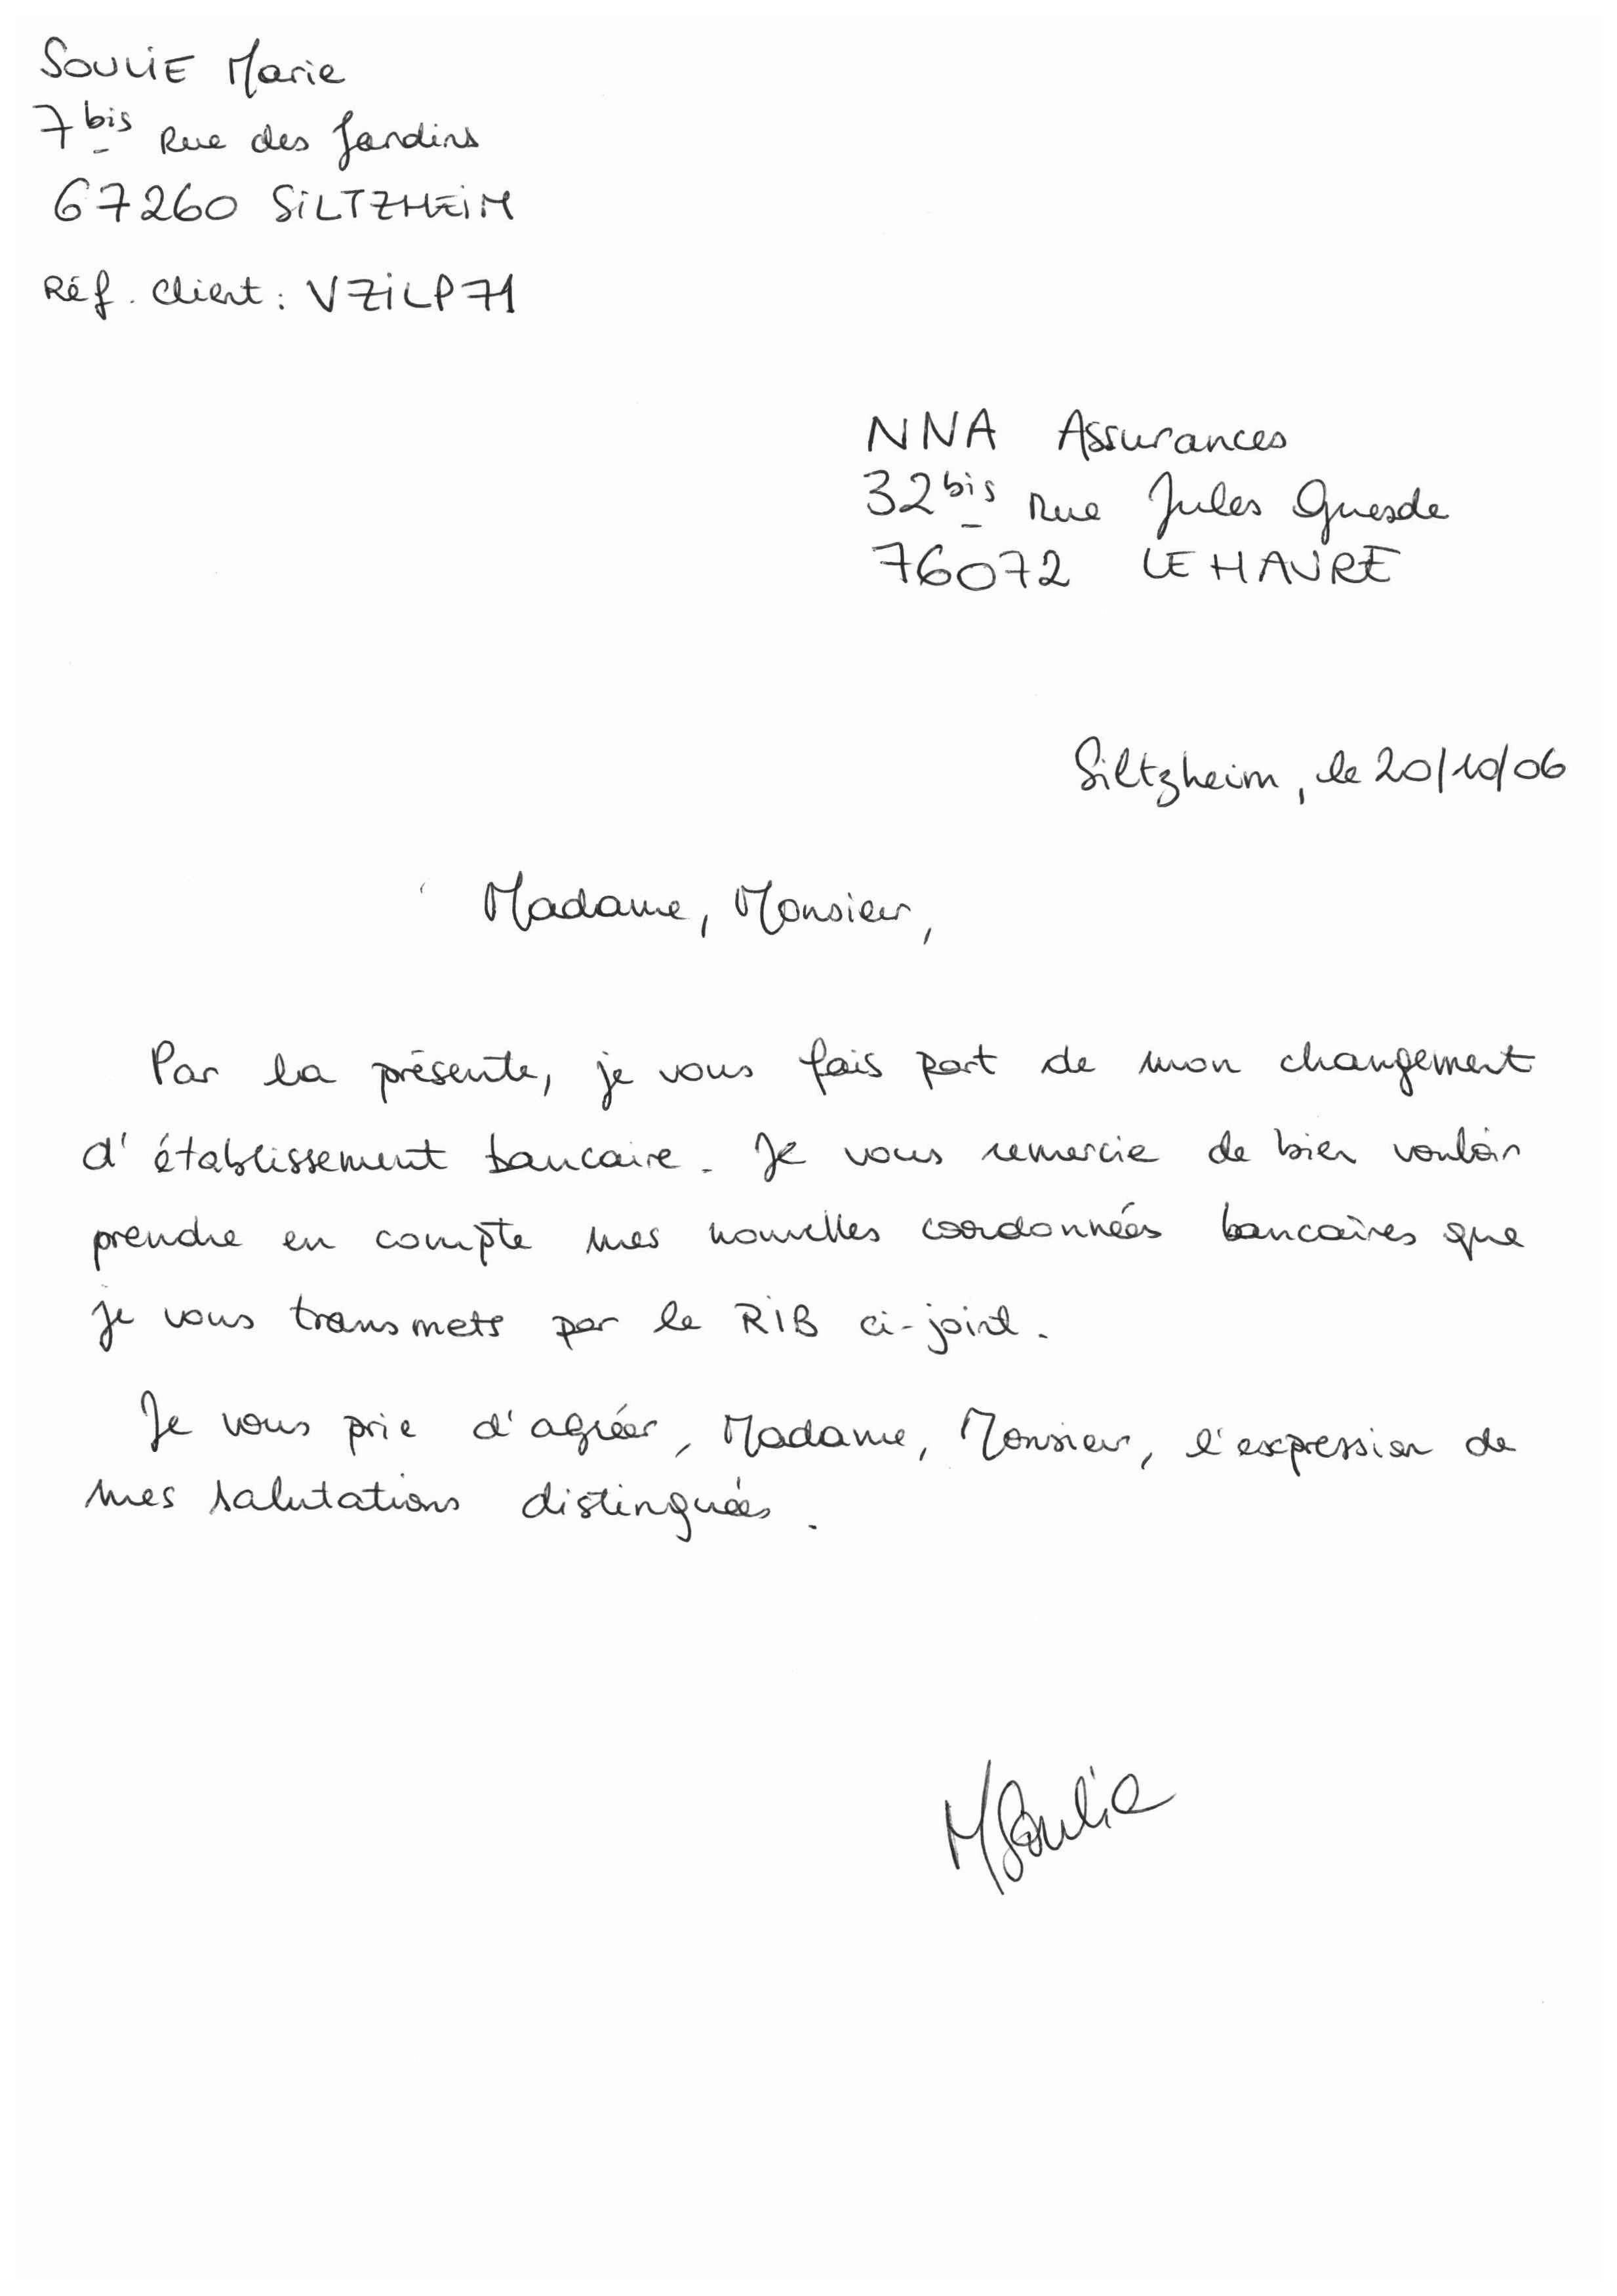 SOULIE Marie
7 bis Rue des Jardins
67260 SILTZHEIM
Réf. Client : VZILP71
NNA Assurances
32 bis Rue Jules Guesde
76072 LE HAVRE
Siltzheim, le 20/10/06
Madame, Monsieur,
Par la présente, je vous fais part de mon changement
d'établissement bancaire. Je vous remercie de bien vouloir
prendre en compte mes nouvelles coordonnées bancaires que
je vous transmets par le RIB ci-joint.
Je vous prie d'agréer, Madame, Monsieur, l'expression de
mes salutations distinguées.
MSoulie